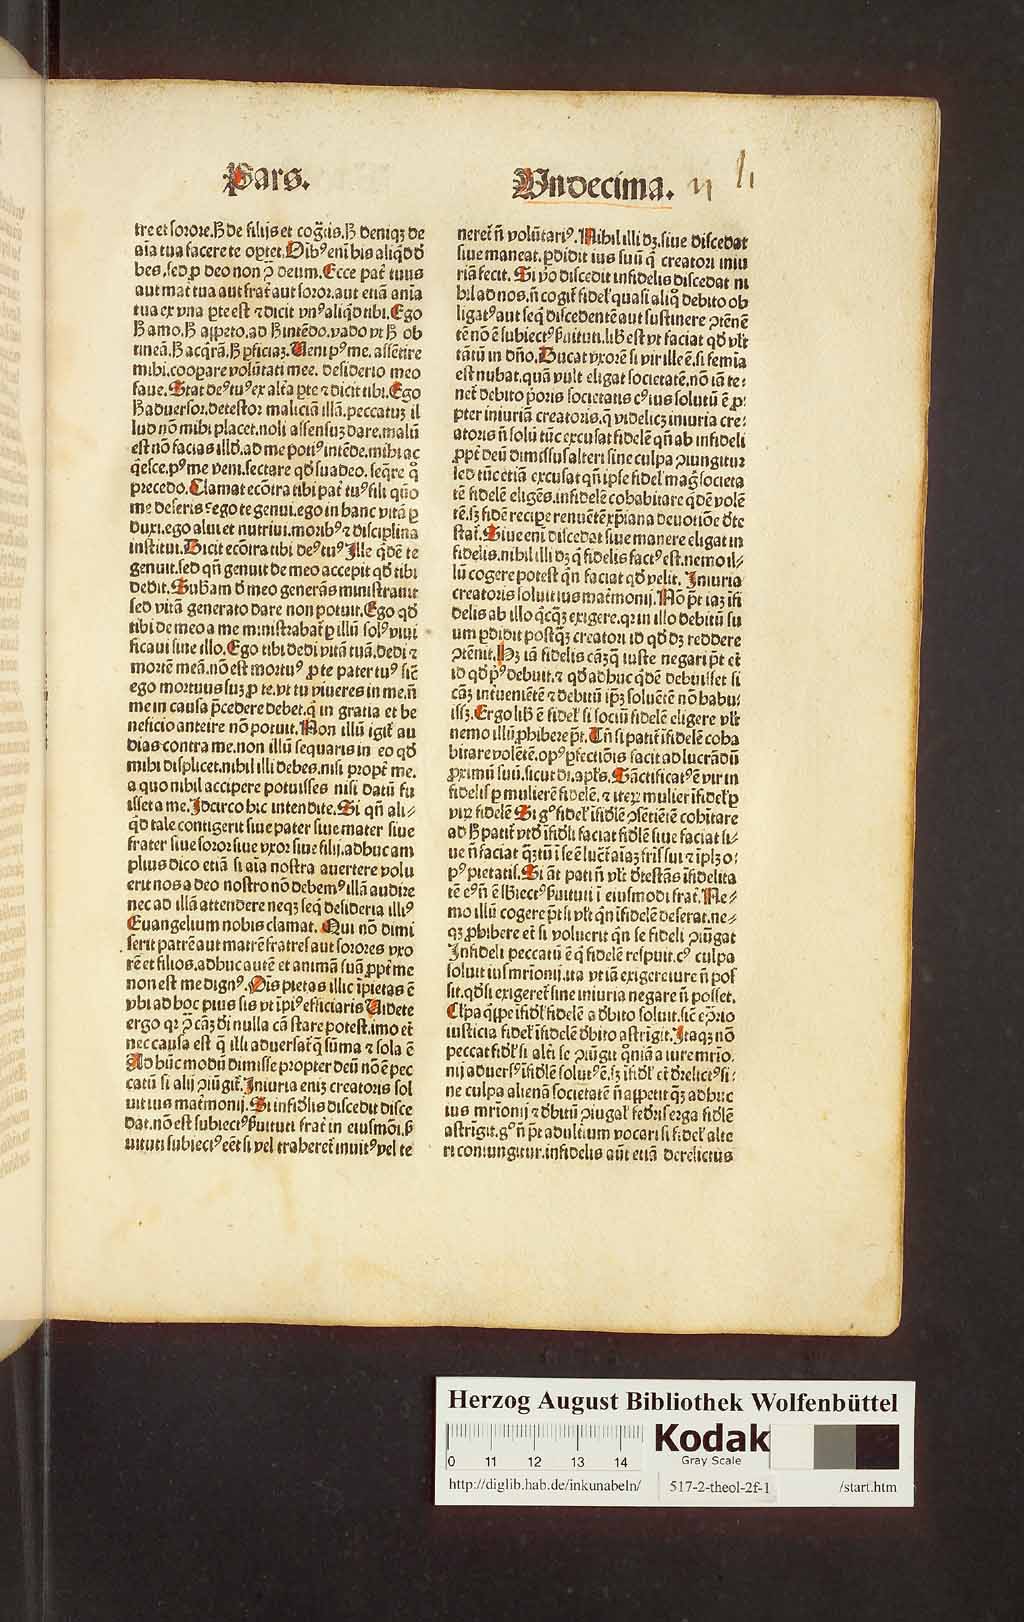 Pars.
Undecima. 11 h
tre et sorore. Hˢ de filijs et cog̃tis. hˢ deniqꝫ de
aĩa tua facere te optet. Oib⁹ eni his aliqd̓ d̓
bes, sed ꝓ deo non ꝯ̃ deum. Ecce pat̃ tuus
aut mat̃ tua aut frat̃ aut soror. aut etiã anima
tua ex vna ꝑte est ⁊ dicit vn⁹ aliqd̓ tibi. Ego
hˢ amo. hˢ appeto, ad hˢ intẽdo. vado vt hˢ ob
tineã. hˢ acq̃rã. hˢ ꝑficiaꝫ. Ueni p⁹ me. assẽtire
mihi. coopare volũtati mee. desiderio meo
faue. Stat de⁹ tu⁹ ex alt̃a ꝑte ⁊ dicit tibi. Ego
hˢ aduersor. detestor maliciã illã. peccatuꝫ il
lud nõ mihi placet. noli assensuꝫ dare. malũ
est nõ facias illd̓. ad me poti⁹ intẽde. mihi ac
q̃esce. p⁹ me veni. sectare qd̓ suadeo. seq̃re q̊
precedo. Clamat ecõtra tibi pat̃ tu⁹ fili quo
me deseris? ego te genui. ego in hanc vitã ꝑ
duxi. ego alui et nutriui. morib⁹ ⁊ disciplina
institui. Dicit ecõtra tibi de⁹ tu⁹ Ille q̃dẽ te
genuit. sed qñ genuit de meo accepit qd̓ tibi
dedit. Subãm d̓ meo generãs ministrauit
sed vitã generato dare non potuit. Ego qd̓
tibi de meo a me ministrabat̃ ꝑ illũ sol⁹ viui
ficaui sine illo. Ego tibi dedi vitã tuã. dedi ⁊
mortẽ meã. nõ est mortu⁹ ꝓ te pater tu⁹ sic̃
ego mortuus suꝫ ꝓ te. vt tu viueres in me. ñ
me in causa p̃cedere debet. q̃ in gratia et be
neficio anteire nõ potuit. Non illũ igit̃ au
dias contra me. non illũ sequaris in eo qd̓
mihi displicet. nihil illi debes. nisi propt̃ me.
a quo nihil accipere potuisses nisi datũ fu
isset a me. Idcirco hic intendite. Si qñ ali⸗
q̃d tale contigerit siue pater siue mater siue
frater siue soror siue vxor siue filij. adhuc am
plius dico etiã si aĩa nostra auertere volu
erit nos a deo nostro nõ debem⁹ illã audire
nec ad illã attendere neqꝫ seq̃ desideria illi⁹
Euangelium nobis clamat. Qui nõ dimi
serit patrẽ aut matrẽ fratres aut sorores vxo
rẽ et filios. adhuc autẽ et animã suã ꝓpt̃ me
non est me dign⁹. Ois pietas illic ĩpietas ẽ
vbi ad hoc pius sis vt ĩpi⁹ efficiaris Uidete
ergo qꝛ ꝯ̃ cãꝫ di nulla cã stare potest. imo et̃
nec causa est q̃ illi aduersat̃ q̃ sũma ⁊ sola ẽ
Ad hũc modũ dimisse propter deũ nõ ẽ pec
catũ si alij ꝯiũgit̃. Iniuria eniꝫ creatoris sol
uit ius mat̃monij. Si infid̓lis discedit disce
dat. nõ est subiect⁹ fuituti frat̃ in eiusmõi. f̃
uituti subiect⁹ eẽt si vel traheret̃ inuit⁹ vel te
neret̃ ñ volũtari⁹. Nihil illi dꝫ. siue discedat
siue maneat. ꝑdidit ius suũ q̃ creatori iniu
riã fecit. Si v̊o discedit infidelis discedat ni
hil ad nos. ñ cogit̃ fidel̓ quasi aliq̊ debito ob
ligat⁹ aut seq̃ discedentẽ aut sustinere ꝯtẽnẽ
tẽ nõ ẽ subiect⁹ f̃uituti. lib̃ est vt faciat qd̓ vl̓t
tãtũ in dño. Ducat vxorẽ si vir ille ẽ. si femĩa
est nubat. quã vult eligat societatẽ. nõ iã te⸗
net̃ debito p̃oris societatis c⁹ ius solutũ ẽ ꝓ⸗
pter iniuriã creatoris. q̃ videlicꝫ iniuria cre⸗
atoris ñ solũ tũc excusat fidelẽ qñ ab infideli
ꝓpt̃ deũ dimissus alteri sine culpa ꝯiungitur
sed tũc etiã excusat qñ ipse fidel̓ mag̃ societa
tẽ fidelẽ eligẽs. infidelẽ cohabitare q̃dẽ volẽ
tẽ. sꝫ fidẽ recipe renuẽtẽ xp̃iana deuotiõe d̓te
stat̃. Siue eni discedat siue manere eligat in
fidelis. nihil illi dꝫ q̃ fidelis fact⁹ est. nemo il⸗
lũ cogere potest q̃n faciat qd̓ velit. Iniuria
creatoris soluit ius mat̃monij. Nõ p̃t iaꝫ ĩfi
delis ab illo q̃cq̃ꝫ exigere. qꝛ in illo debitũ su
um ꝑdidit postq̃ꝫ creatori id qd̓ dꝫ reddere
ꝯtẽnit. Hꝫ iã fidelis cãꝫ q̃ iuste negari p̃t et̃
id qd̓ p⁹ debuit. ⁊ qd̓ adhuc q̃dẽ debuisset si
cãꝫ intueniẽtẽ ⁊ debitũ ip̃ꝫ soluẽtẽ nõ habu⸗
issꝫ. Ergo lib̃ ẽ fidel̓ si sociũ fidelẽ eligere vl̓t
nemo illũ ꝓhibere p̃t. Tñ si patit̃ ĩfidelẽ coha
bitare volẽtẽ. op⁹ ꝑfectiõis facit ad lucrãdũ
ꝓximũ suũ. sicut di. apl̓s. Sãctificat⁹ ẽ vir in
fidelis ꝑ mulierẽ fidelẽ. ⁊ iteꝝ mulier ĩfidel̓ ꝑ
viꝝ fidelẽ Si g⁹ fidel̓ ĩfid̓lẽ ꝯsetiẽtẽ cohitare
ad hˢ patit̃ vtd̓ ĩfid̓li faciat fid̓lẽ siue faciat si⸗
ue ñ faciat q̃ꝫtũ ĩ se ẽ lucr̃t aĩaꝫ fris sui ⁊ ĩplꝫ o⸗
p⁹ pietatis. Si at̃ pati ñ vl̓t d̓testãs ĩfidelita
tẽ e⁹ ñ ẽ sbiect⁹ f̃uituti ĩ eiusmodi frat̃. Ne⸗
mo illũ cogere p̃t si vl̓t q̃n ĩfidelẽ deserat. ne⸗
qꝫ ꝓhibere et̃ si voluerit q̃n se fideli ꝯiũgat
Infideli peccatũ ẽ q̃ fidelẽ respuit. c⁹ culpa
soluit ius mr̃ionij. ita vt iã exigere iure ñ pos⸗
sit. qd̓ si exigeret̃ sine iniuria negare ñ posset.
Cl̓pa q̃ipe ĩfid̓l̓ fidelẽ a d̓bito soluit. sic̃ e ꝯ̃rio
iusticia fidel̓ ĩfidelẽ d̓bito astrĩgit. Itaqꝫ nõ
peccat fid̓l̓ si alt̃i se ꝯiũgit q̊niã a iure mr̃io.
nij aduers⁹ ĩfid̓lẽ solut⁹ ẽ. sꝫ ĩfid̓l̓ et̃ d̓relict⁹ si⸗
ne culpa alienã societatẽ ñ appetit qꝫ adhuc
ius mr̃ionij ⁊ d̓bitũ ꝯiugal̓ fed̓is erga fid̓lẽ
astrĩgit. g⁹ ñ p̃t adultium vocari si fidel̓ alte
ri coniungitur. infidelis aũt etiã derelictus
Herzog August Bibliothek Wolfenbüttel
0 11 12 13 14
Kodak
Gray Scale
http://diglib.hab.de/inkunabeln/ 517-2-theol-2f-1 /start.htm